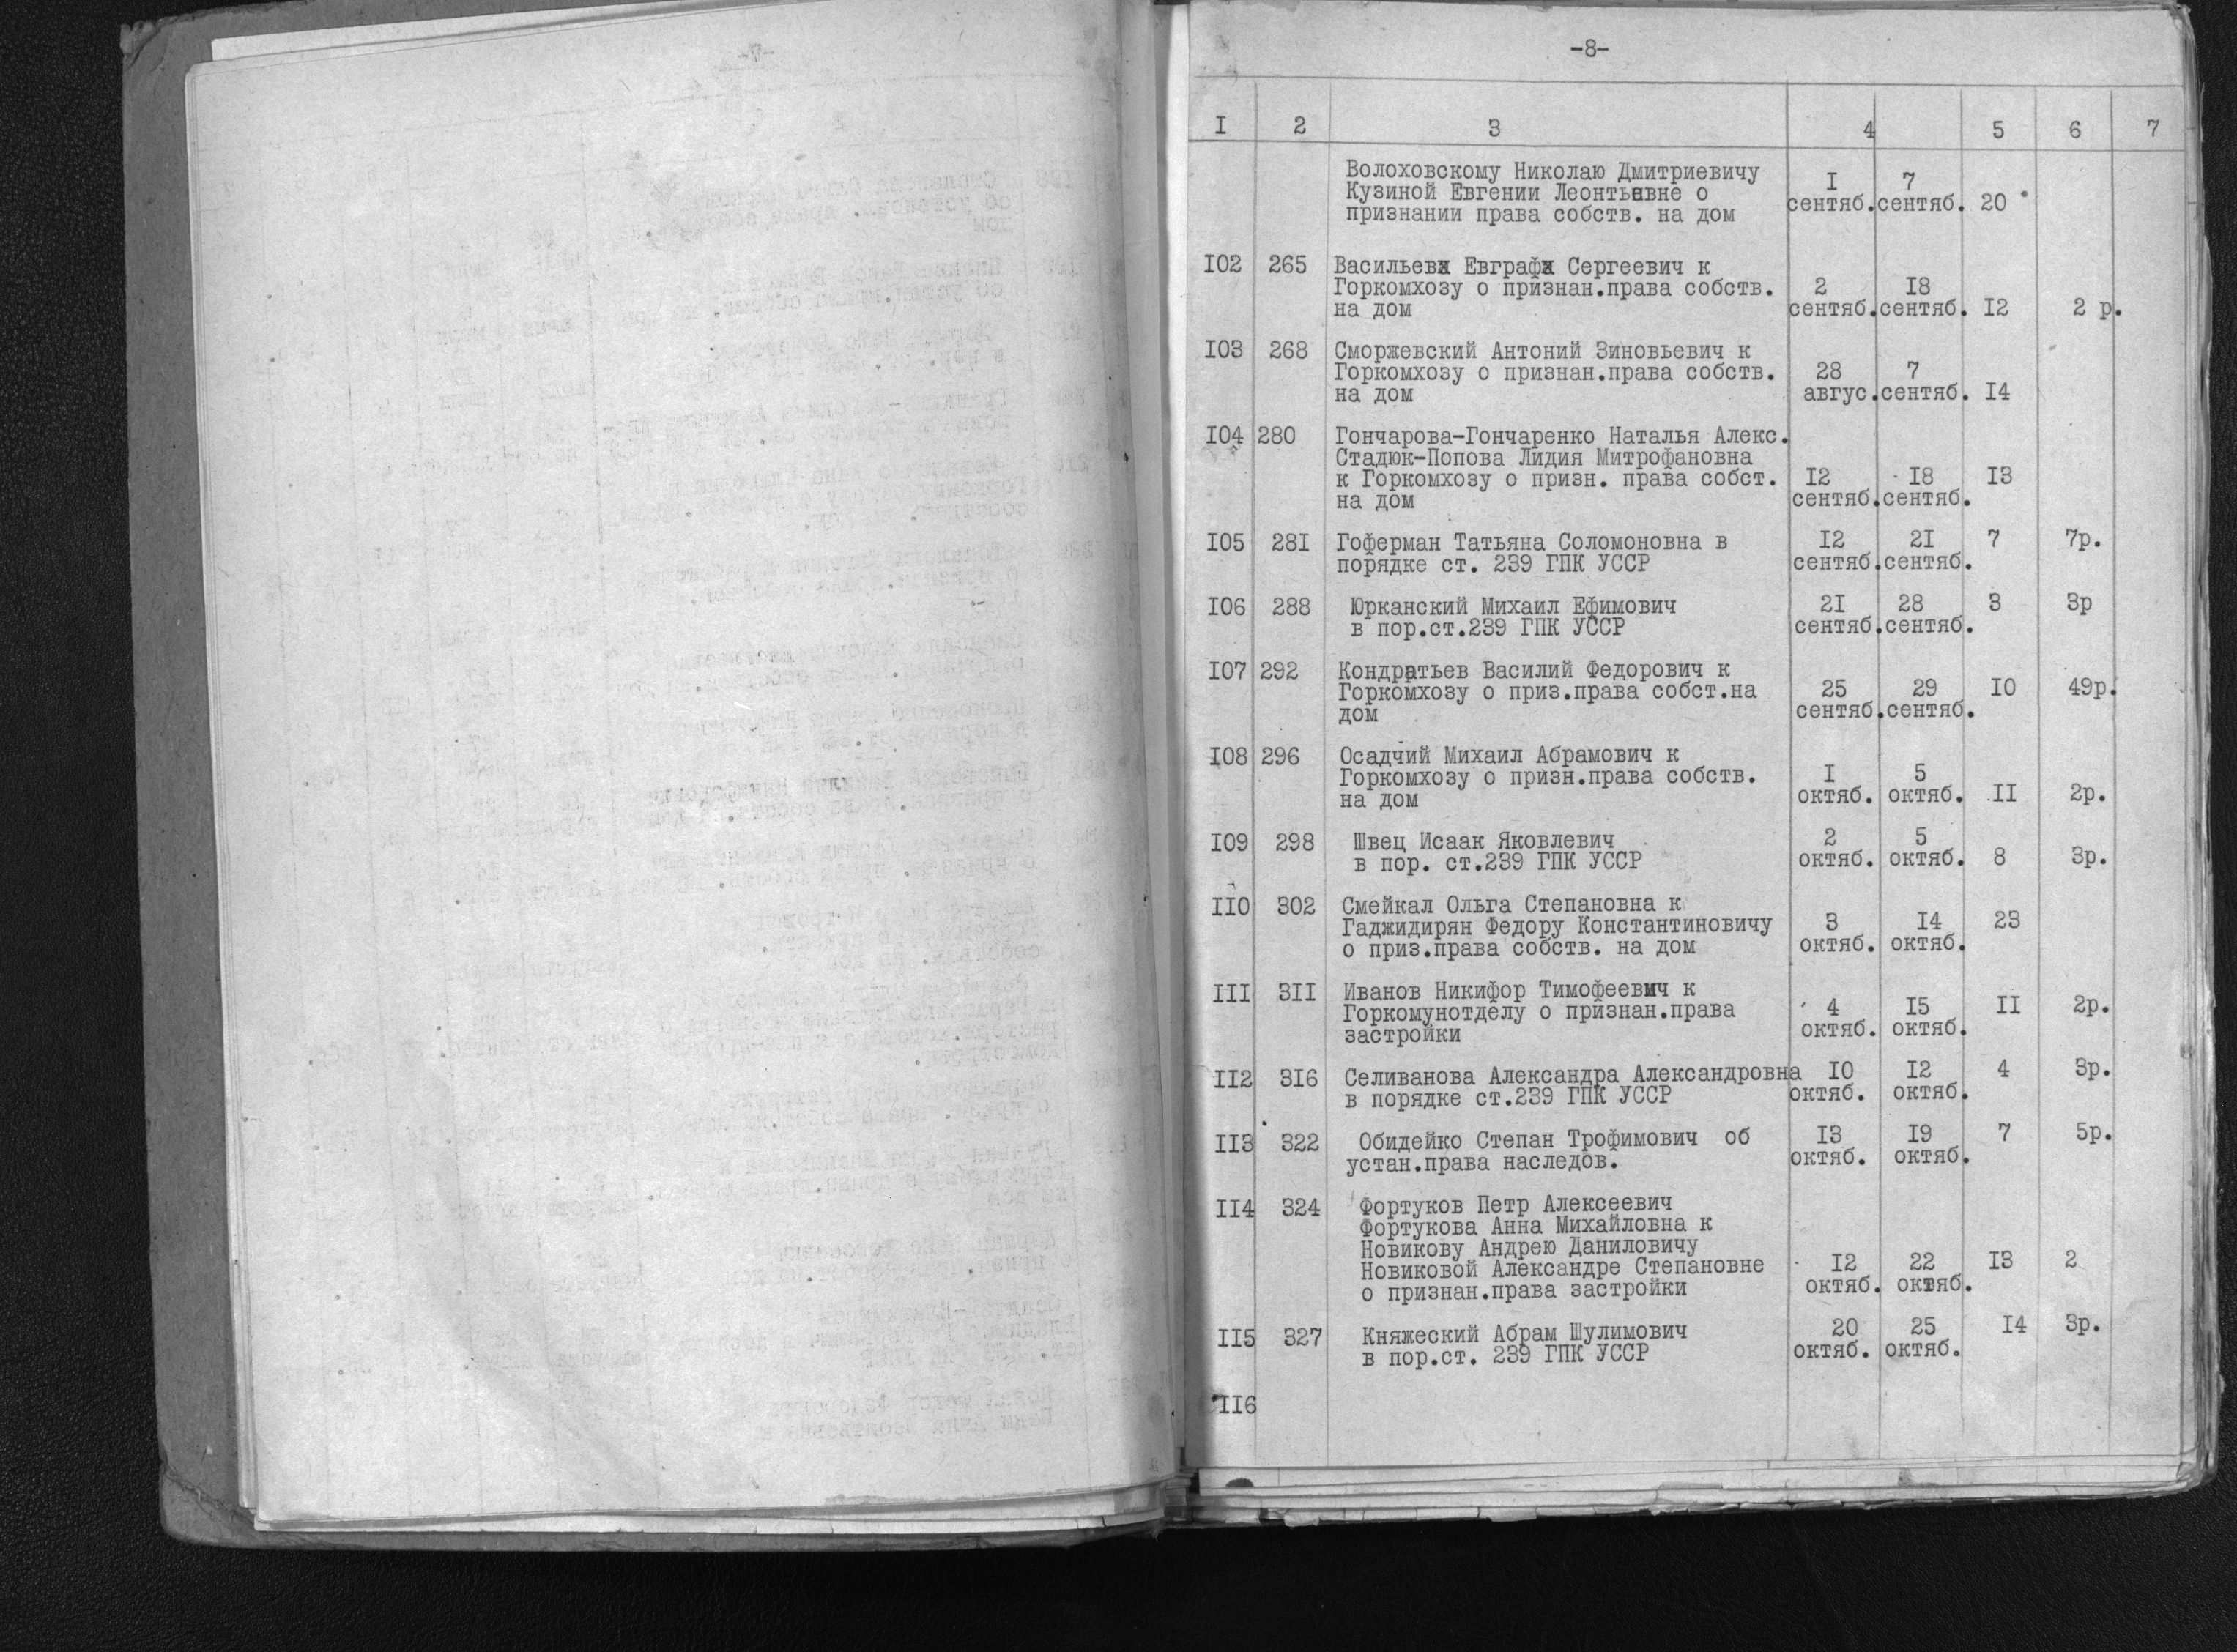 -8-
I 2 3 4 5 6 7
Волоховскому Николаю Дмитриевичу
Кузиной Евгении Леонтьевне о I 7
признании права собств. на дом сентяб. сентяб. 20
I02 265 Васильев Евграф Сергеевич к
Горкомхозу о признан.права собств. 2 I8
на дом сентяб. сентяб. I2 2 р.
I03 268 Сморжевский Антоний Зиновьевич к
Горкомхозу о признан.права собств. 28 7
на дом авгус. сентяб. I4
I04 280 Гончарова-Гончаренко Наталья Алекс.
Стадюк-Попова Лидия Митрофановна
к Горкомхозу о призн. права собст. I2 I8 I3
на дом сентяб. сентяб.
I05 28I Гоферман Татьяна Соломоновна в I2 2I 7 7р.
порядке ст. 239 ГПК УССР сентяб. сентяб.
I06 288 Юрканский Михаил Ефимович 2I 28 3 3р
в пор.ст.239 ГПК УССР сентяб. сентяб.
I07 292 Кондратьев Василий Федорович к
Горкомхозу о приз.права собст.на 25 29 I0 49р.
дом сентяб. сентяб.
I08 296 Осадчий Михаил Абрамович к
Горкомхозу о призн.права собств. I 5
на дом октяб. октяб. II 2р.
I09 298 Швец Исаак Яковлевич 2 5
в пор. ст.239 ГПК УССР октяб. октяб. 8 3р.
II0 302 Смейкал Ольга Степановна к
Гаджидирян Федору Константиновичу 3 I4 23
о приз.права собств. на дом октяб. октяб.
III 3II Иванов Никифор Тимофеевич к
Горкомунотделу о признан.права 4 I5 II 2р.
застройки октяб. октяб.
II2 3I6 Селиванова Александра Александровна I0 I2 4 3р.
в порядке ст.239 ГПК УССР октяб. октяб.
II3 322 Обидейко Степан Трофимович об I3 I9 7 5р.
устан.права наследов. октяб. октяб.
II4 324 Фортуков Петр Алексеевич
Фортукова Анна Михайловна к
Новикову Андрею Даниловичу
Новиковой Александре Степановне I2 22 I3 2
о признан.права застройки октяб. октяб.
II5 327 Княжеский Абрам Шулимович 20 25 I4 3р.
в пор.ст. 239 ГПК УССР октяб. октяб.
II6